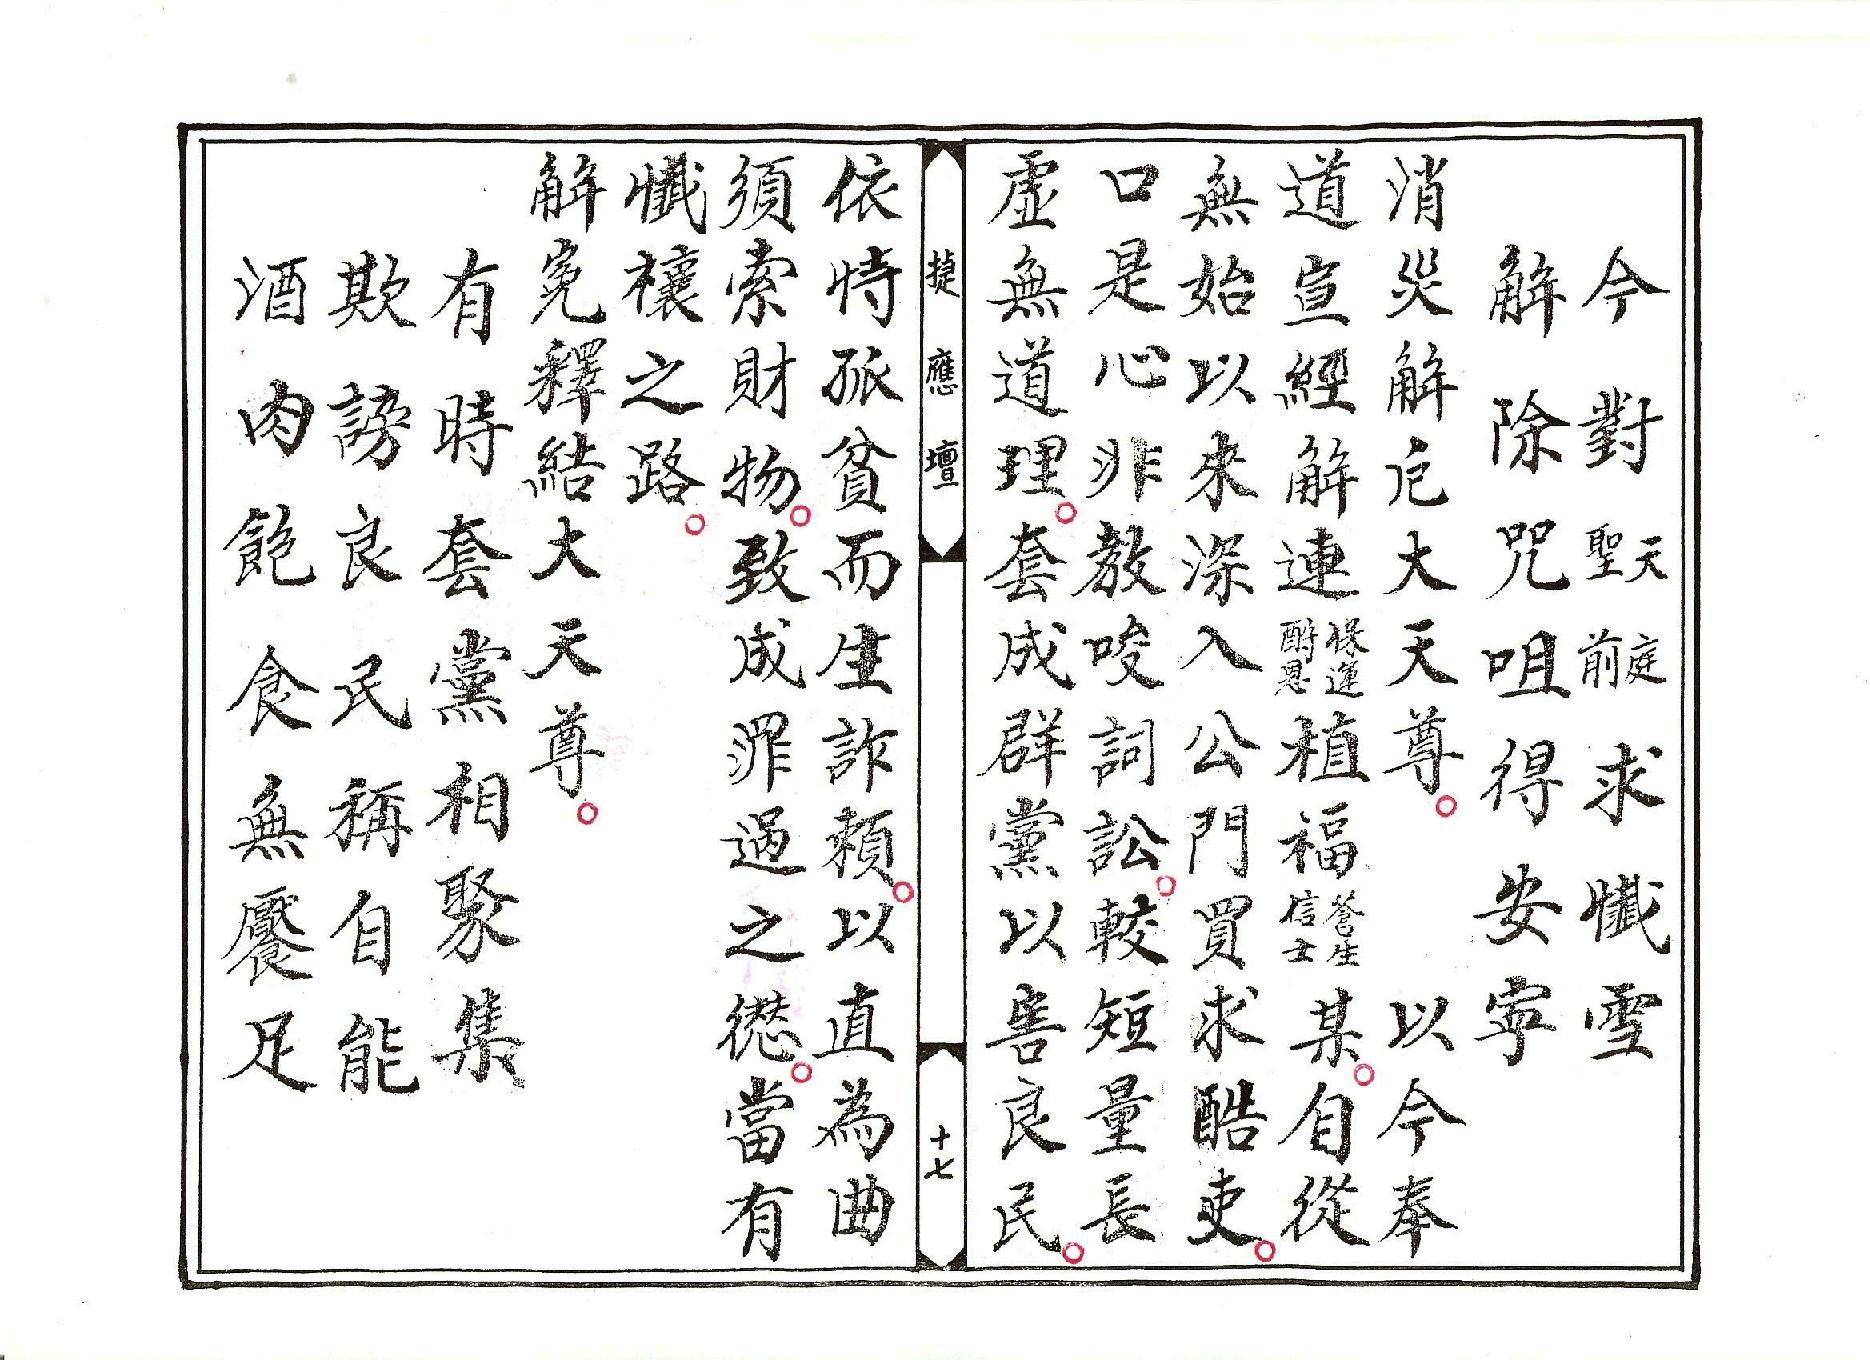 今對天庭聖前求懺雪
解除咒咀得安寧
消災解厄大天尊。以今奉
道宣經解連保運酬恩植福蒼生信士某。自從
無始以來深入公門買求酷吏。
口是心非教唆詞訟。較短量長
虛無道理。套成群黨以害良民。
捷應壇
十七
依恃孤貧而生詐賴。以直為曲
須索財物。致成罪過之愆。當有
懺禳之路。
解冤釋結大天尊。
有時套黨相聚集
欺謗良民稱自能
酒肉飽食無饜足